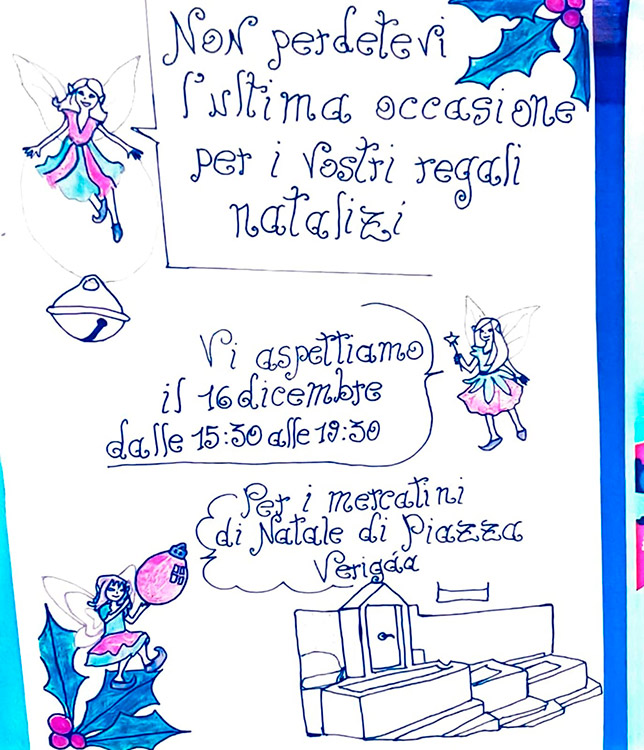 Non perdetevi
l'ultima occasione
per i vostri regali
natalizi
Vi aspettiamo
il 16 dicembre
dalle 15:30 alle 19:30
Per i mercatini
di Natale di Piazza